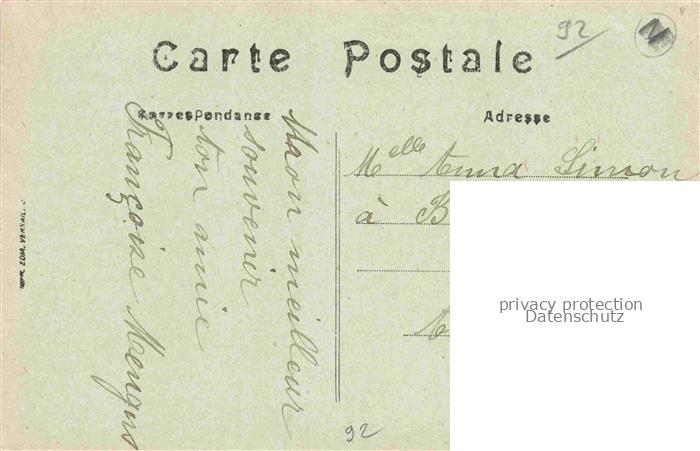 92
Carte Postale
Correspondance
Adresse
Mon meilleur
souvenir
ton amie
Françoise Mengus
Melle Anna Simon
à B
privacy protection
Datenschutz
92